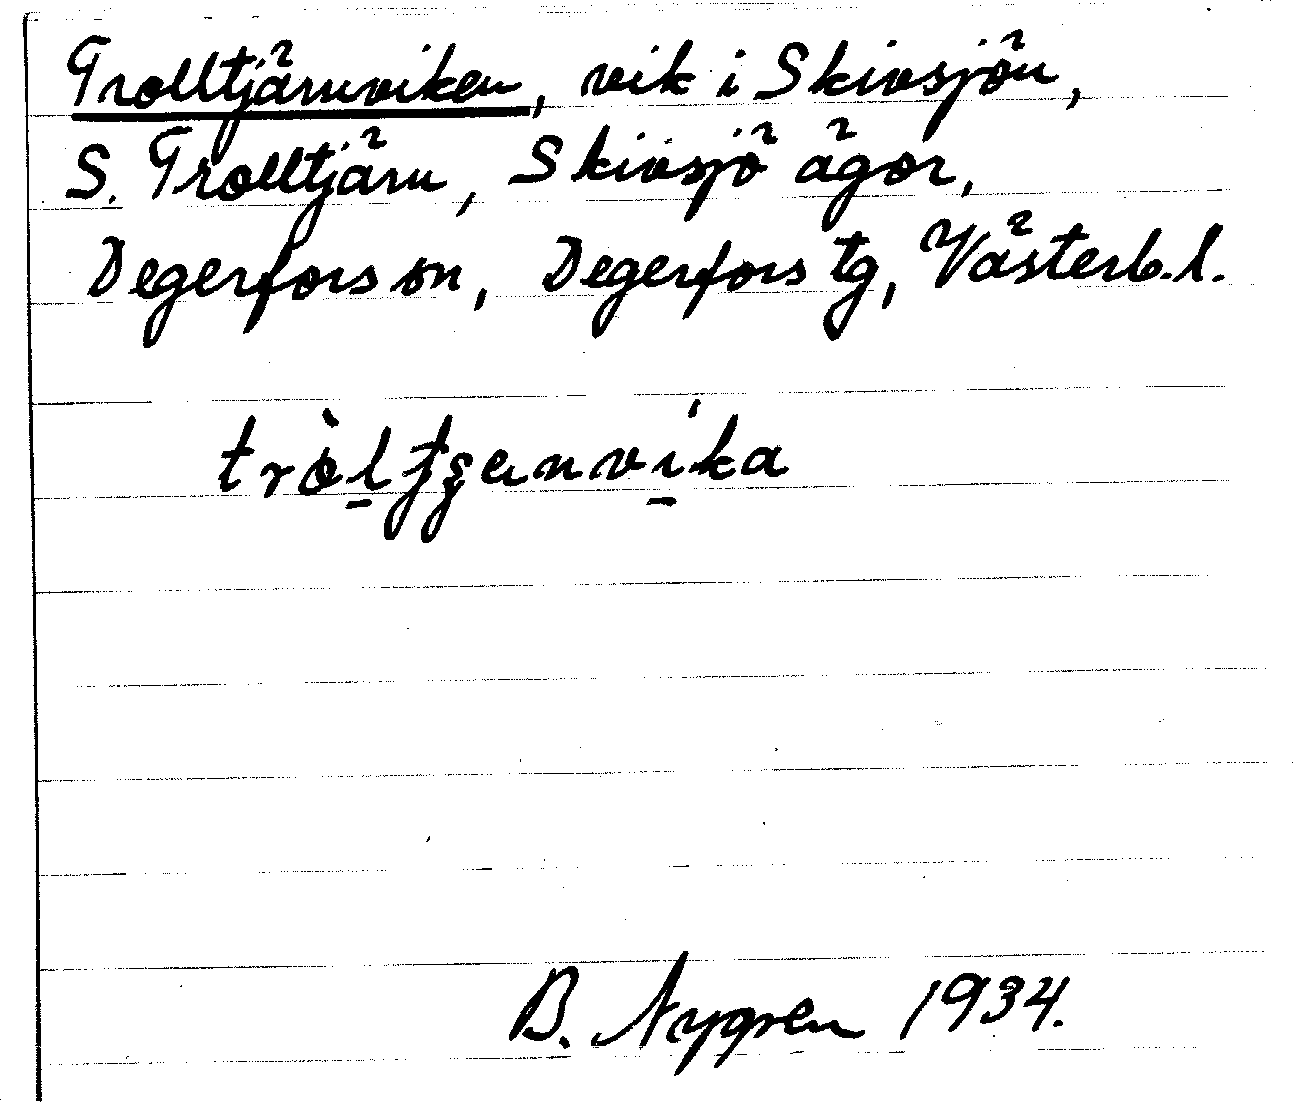 Trolltjärnviken, vik i Skivsjön,
S. Trolltjärn, Skivsjö ägor,
Degerfors sn, Degerfors tg, Västerb. l.
B. Nygren 1934.